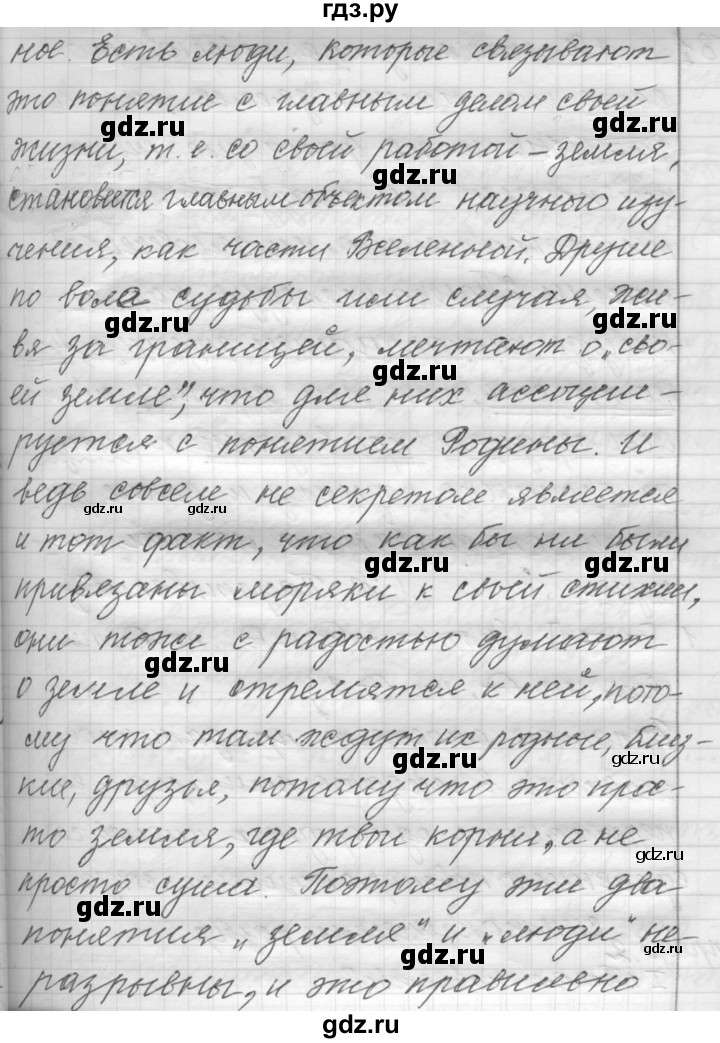 гдз.ру
ное. Есть люди, которые связывают
это понятие с главным делом своей
gdz.ru
gdz.ru
жизни, т. е. со своей работой – земля,
gdz.ru
становится главным объектом научного изу-
чения, как части Вселенной. Другие
gdz.ru
по воле судьбы или случая, жи-
gdz.ru
вя за границей, мечтают о „сво-
gdz.ru
ей земле", что для них ассоции-
руется с понятием Родины. И
ведь совсем не секретом является
gdz.ru
gdz.ru
и тот факт, что как бы ни были
gdz.ru
gdz.ru
привязаны моряки к своей стихии,
они тоже с радостью думают
gdz.ru
о земле и стремятся к ней, пото-
му что там ждут их родные, близ-
gdz.ru
gdz.ru
кие, друзья, потому что это прос-
то земля, где твои корни, а не
gdz.ru
просто суша. Поэтому эти два
gdz.ru
понятия „земля" и „люди" не-
gdz.ru
разрывны, и это правильно
gdz.ru